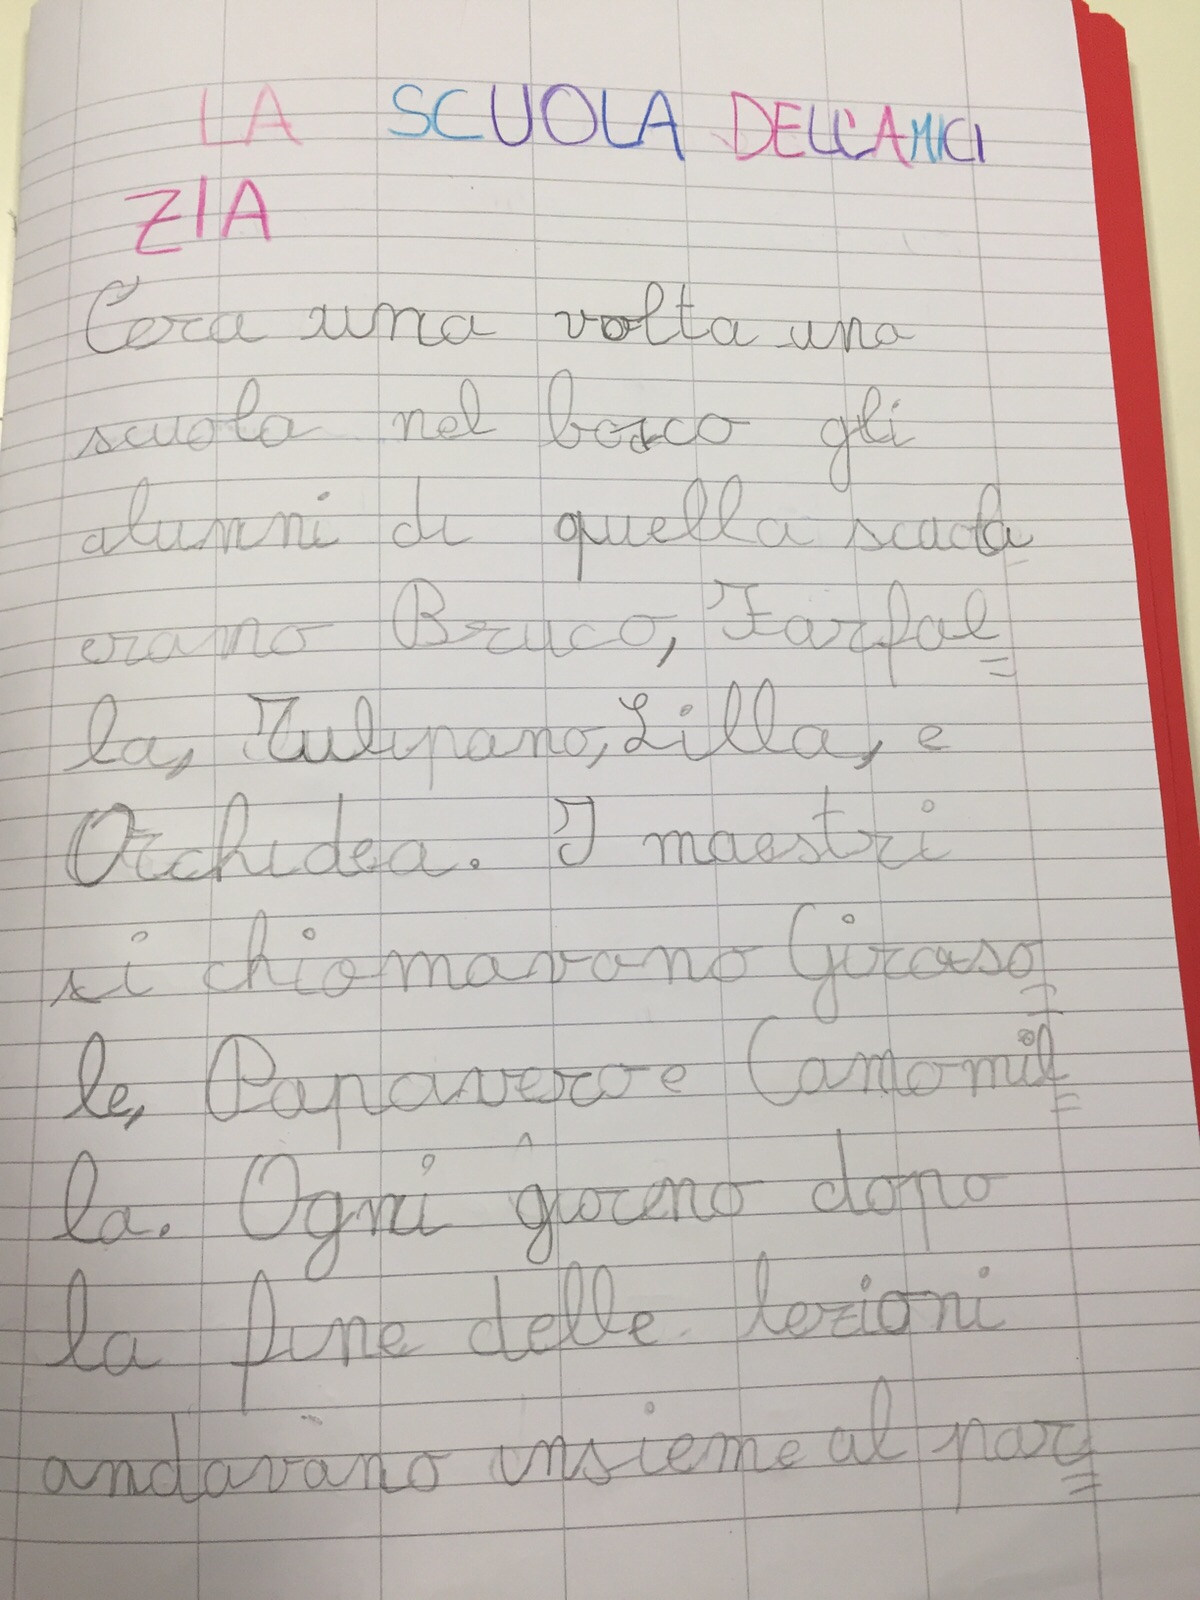 LA SCUOLA DELL'AMICI
ZIA
C'era una volta una
scuola nel bosco gli
alunni di quella scuola
erano Bruco, Farfal=
la, Tulipano, Lilla, e
Orchidea. I maestri
si chiamavano Giraso=
le, Papavero e Camomil=
la. Ogni giorno dopo
la fine delle lezioni
andavano insieme al par=